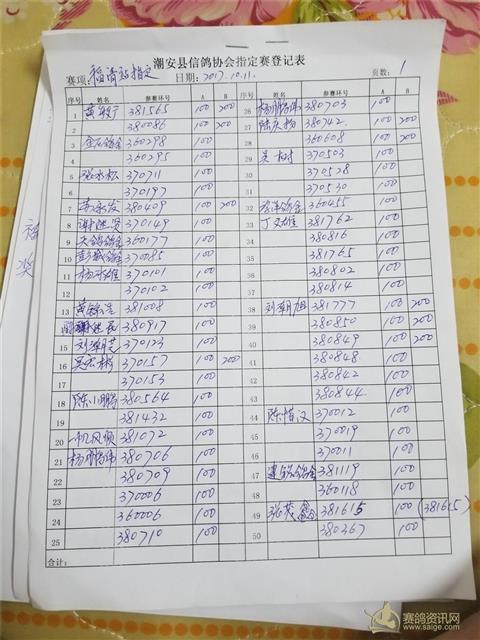 潮安县信鸽协会指定赛登记表
赛项: 福清站指定 日期: 2017.10.11. 页数: 1
序号 姓名 参赛环号 A B 序号 姓名 参赛环号 A B
1 381565 100 200 26 380703 100
2 380086 100 200 27 380742 100 200
3 360298 100 28 360608 100 200
4 360295 100 29 吴树 370503 100
5 张水松 370711 100 30 370528 100
6 370197 100 31 370530 100
7 380409 100 200 32 360455 100
8 谢进贤 370149 100 33 丁文雄 381762 100
9 天鸽鸽舍 360177 100 34 380816 100
10 彭城鸽舍 370785 100 35 381765 100
11 杨水雄 370101 100 36 380802 100
12 370102 100 37 380814 100
13 381008 100 38 刘朝旭 381777 100 200
14 380917 100 39 380850 100 200
15 370123 100 40 380849 100 200
16 吴宏彬 370157 100 200 41 380848 100
17 370153 100 42 380842 100
18 陈小鹏 380564 100 43 380844 100
19 381432 100 44 陈惜汉 370012 100
20 一帆风顺 381072 100 45 370019 100
21 380706 100 46 370011 100
22 380709 100 47 381119 100
23 370006 100 48 360118 100
24 360006 100 49 张茂鑫 381615 100 (381615)
25 380710 100 50 380367 100
合计:
福
奖
赛鸽资讯网
www.saige.com